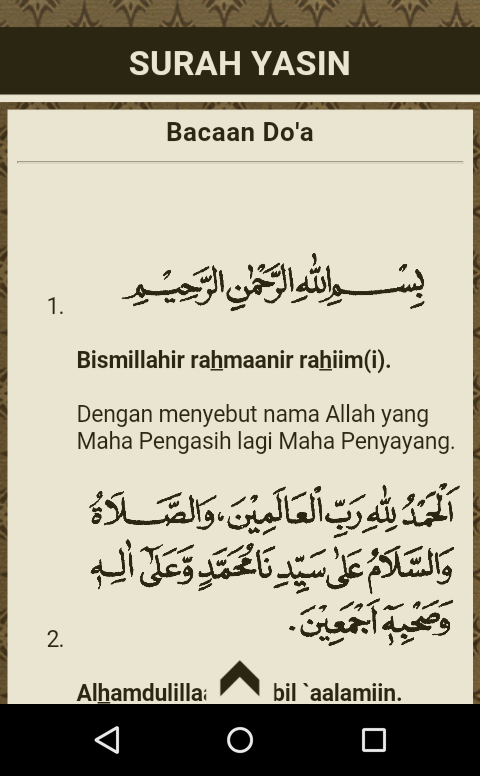 SURAH YASIN
Bacaan Do'a
بِسْمِ اللهِ الرَّحْمٰنِ الرَّحِيْمِ
1.
Bismillahir rahmaanir rahiim(i).
Dengan menyebut nama Allah yang
Maha Pengasih lagi Maha Penyayang.
اَلْحَمْدُ لِلّٰهِ رَبِّ الْعَالَمِيْنَ، وَالصَّلَاةُ
وَالسَّلَامُ عَلٰى سَيِّدِنَا مُحَمَّدٍ وَّعَلٰٓى اٰلِهٖ
وَصَحْبِهٖٓ اَجْمَعِيْنَ.
2.
bil `aalamiin.